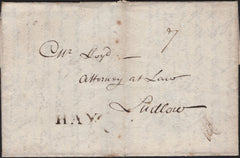 7
Mr Lloyd
Attorney at Law
Ludlow
HAY